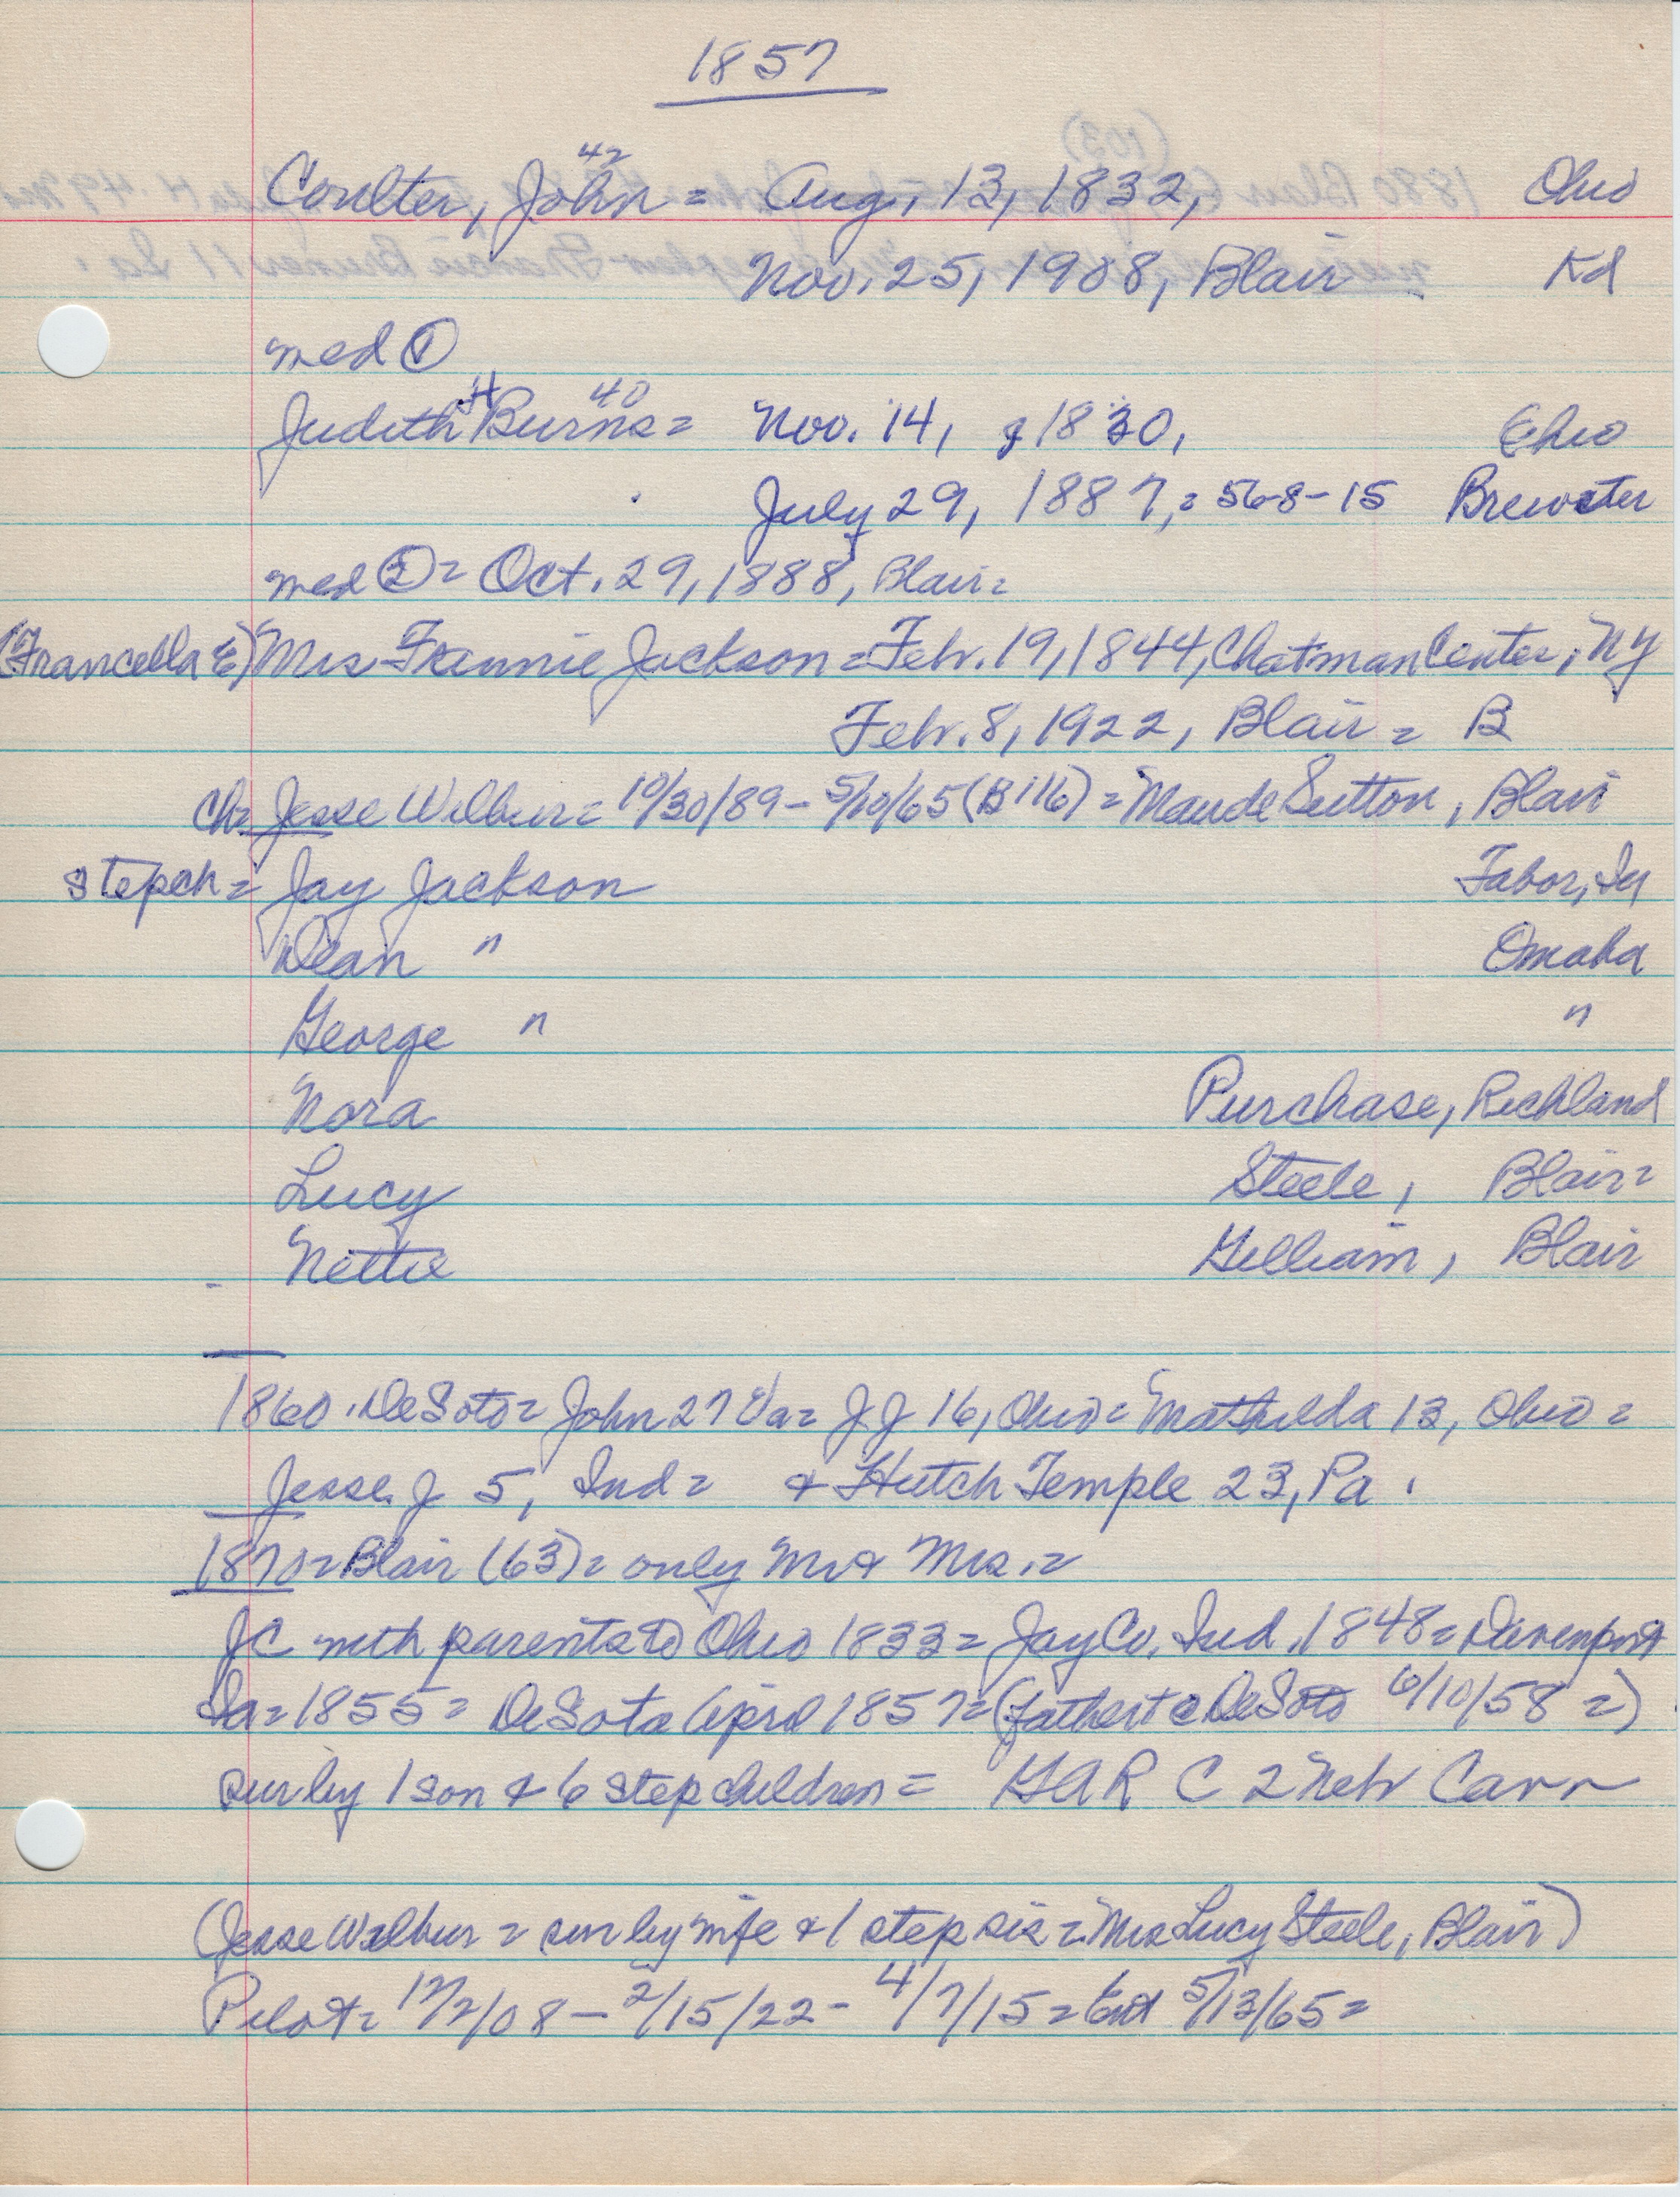 1857
Coulter, John 42 = Aug. 13, 1832, Ohio
Nov. 25, 1908, Blair Kd
med ①
Judith H Burns 40 = Nov. 14, 1830, Ohio
July 29, 1887, = 56-8-15 Brewster
med ② = Oct. 29, 1888, Blair =
(Francella E) Mrs Frannie Jackson = Feb. 19, 1844, Chatman Center, NY
Feb. 8, 1922, Blair = B
Ch = Jesse Wilbur = 10/30/89 - 5/10/65 (B116) = Maude Sutton, Blair
stepch = Jay Jackson Tabor, Ia
Dean " Omaha
George " "
Nora Purchase, Richland
Lucy Steele, Blair =
Nettie Gilliam, Blair
1860. DeSoto = John 27 Va = J J 16, Ohio = Mathilda 13, Ohio =
Jesse J 5, Ind = & Hutch Temple 23, Pa.
1870 = Blair (63) = only Mr & Mrs. =
JC with parents to Ohio 1833 = Jay Co. Ind. 1848 = Davenport
Ia = 1855 = DeSota April 1857 = (father to DeSoto 6/10/58 =)
sur by 1 son & 6 stepchildren = GAR C 2 Nebr Cavr
(Jesse Wilbur = sur by wife & 1 step sis = Mrs Lucy Steele, Blair)
Pilot = 12/2/08 - 2/15/22 - 4/7/15 = Ent 5/13/65 =